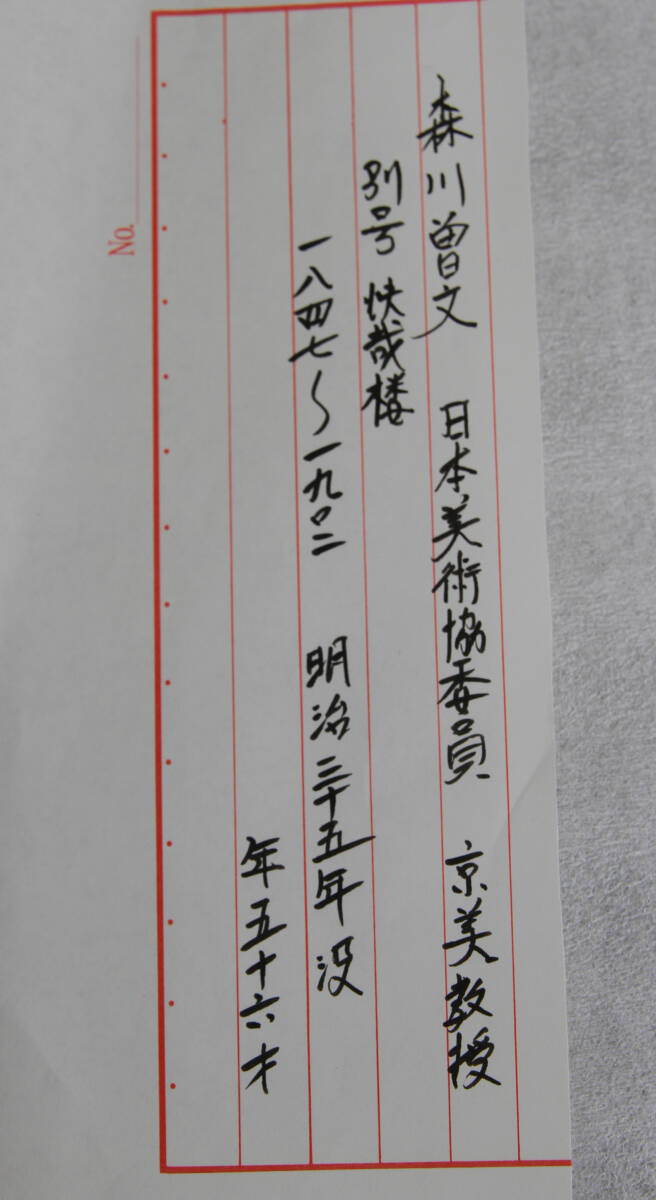 森川曽文 日本美術協委員 京美教授
別号 快哉楼
一八四七〜一九〇二 明治三十五年没
年五十六才
No.